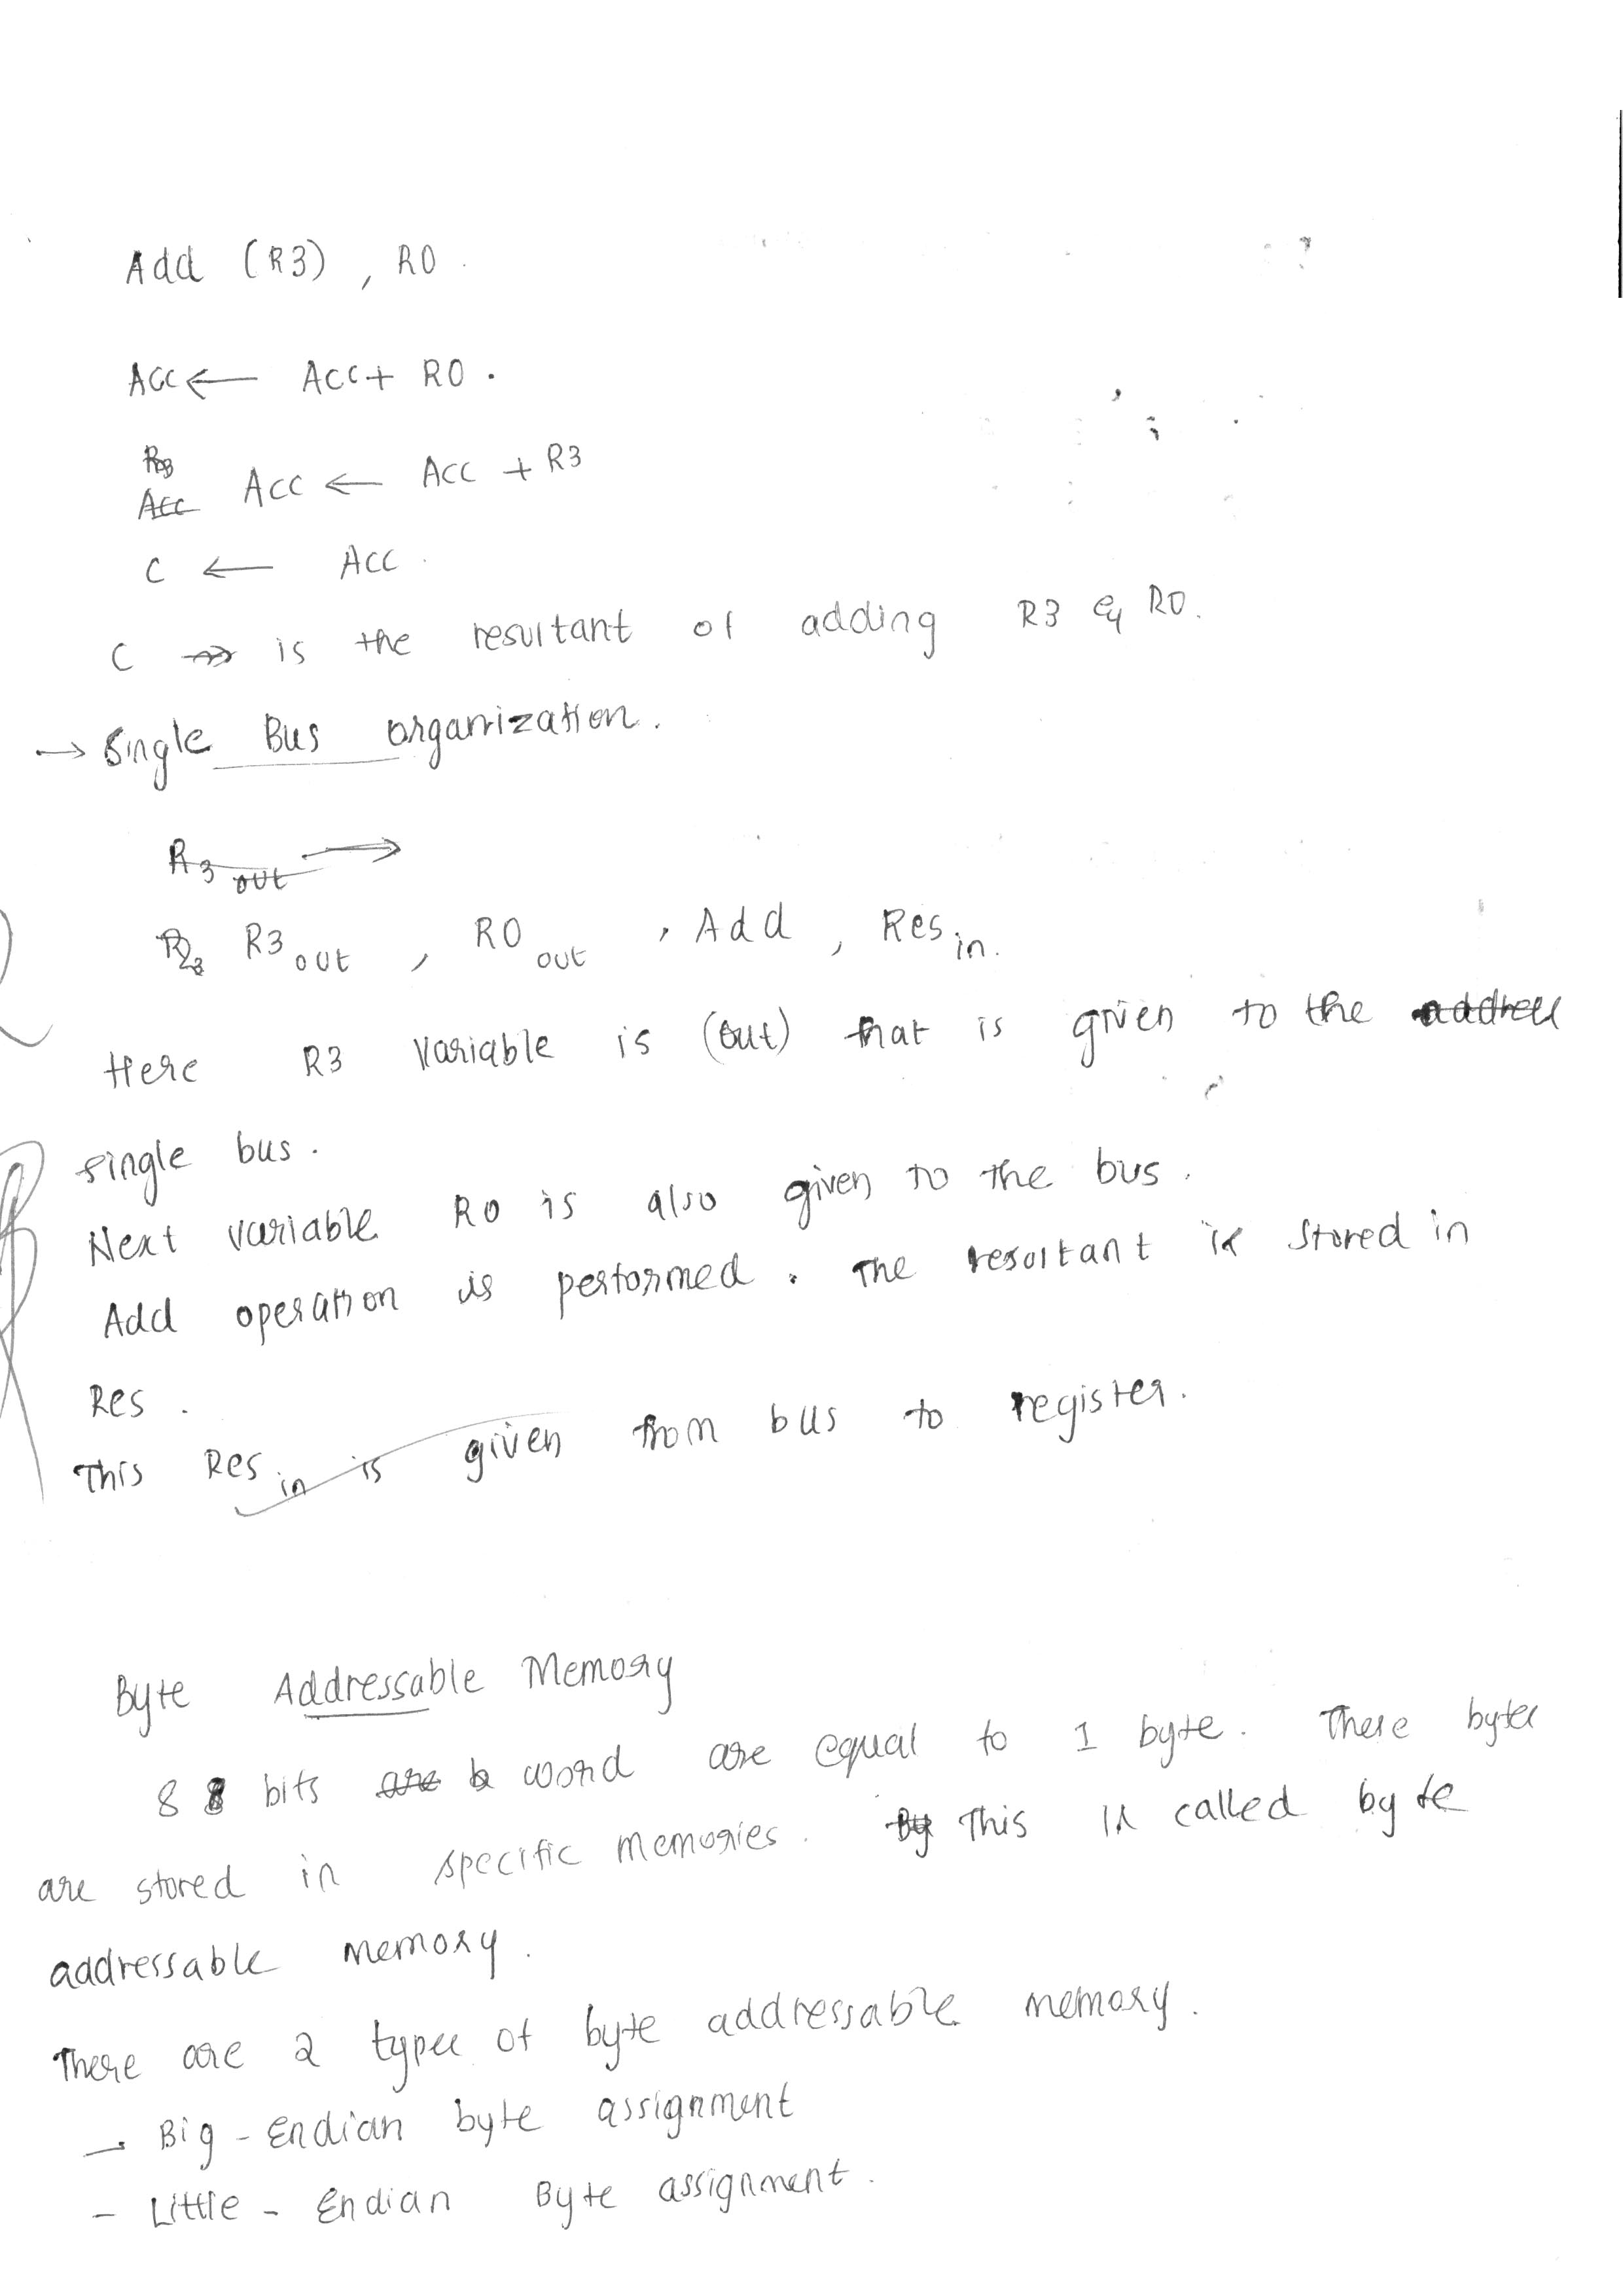 Add (R3) , R0
Acc ← Acc + R0 .
Acc ← Acc + R3
C ← Acc
C is the resultant of adding R3 & R0.
→ Single Bus organization.
R3 out →
R3 out , R0 out , Add , Res in.
Here R3 Variable is (out) that is given to the
single bus .
Next variable R0 is also given to the bus .
Add operation is performed . The resultant is stored in
Res .
This Res in is given from bus to register .
Byte Addressable Memory
8 bits word are equal to 1 byte . These bytes
are stored in specific memories . This is called byte
addressable memory .
There are 2 types of byte addressable memory .
- Big - Endian byte assignment
- Little - Endian Byte assignment .